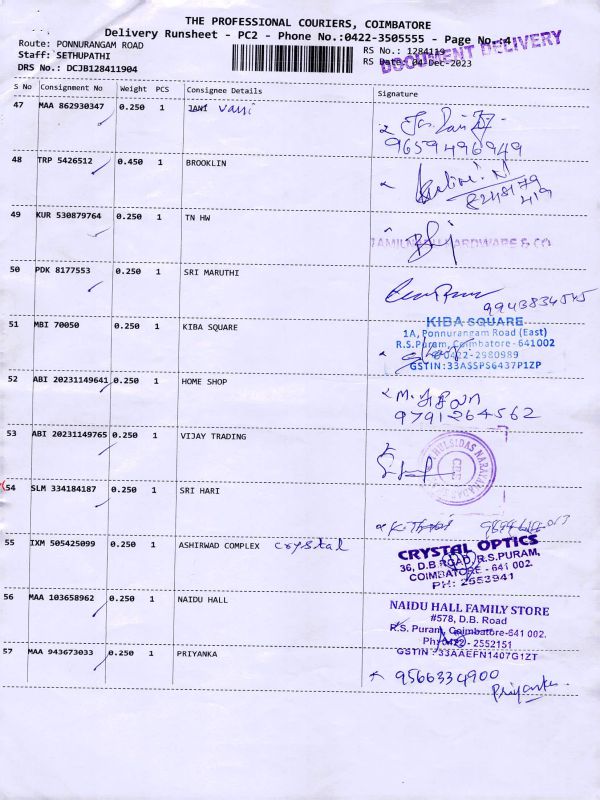 THE PROFESSIONAL COURIERS, COIMBATORE
Delivery Runsheet - PC2 - Phone No.:0422-3505555 - Page No.:4
DOCUMENT DELIVERY
Route: PONNURANGAM ROAD
RS No.: 1284119
Staff: SETHUPATHI
RS Date: 04-Dec-2023
DRS No.: DCJB128411904
S No Consignment No Weight PCS Consignee Details Signature
47 MAA 862930347 0.250 1 JANI Vani
9659496949
48 TRP 5426512 0.450 1 BROOKLIN
8248179
419
49 KUR 530879764 0.250 1 TN HW
TAMILNADU HARDWARE & CO
50 PDK 8177553 0.250 1 SRI MARUTHI
9943834545
51 MBI 70050 0.250 1 KIBA SQUARE
KIBA SQUARE
1A, Ponnurangam Road (East)
R.S.Puram, Coimbatore - 641002
0422-2980989
GSTIN :33ASSPS6437P1ZP
52 ABI 20231149641 0.250 1 HOME SHOP
M.
9791264562
53 ABI 20231149765 0.250 1 VIJAY TRADING
54 SLM 334184187 0.250 1 SRI HARI
55 IXM 505425099 0.250 1 ASHIRWAD COMPLEX crystal
CRYSTAL OPTICS
36, D.B ROAD, R.S.PURAM,
COIMBATORE - 641 002.
PH: 2553941
56 MAA 103658962 0.250 1 NAIDU HALL
NAIDU HALL FAMILY STORE
#578, D.B. Road
R.S. Puram, Coimbatore-641 002.
Ph: 0422- 2552151
GSTIN :33AAEFN1407G1ZT
57 MAA 943673033 0.250 1 PRIYANKA
9566334900
Priyanka